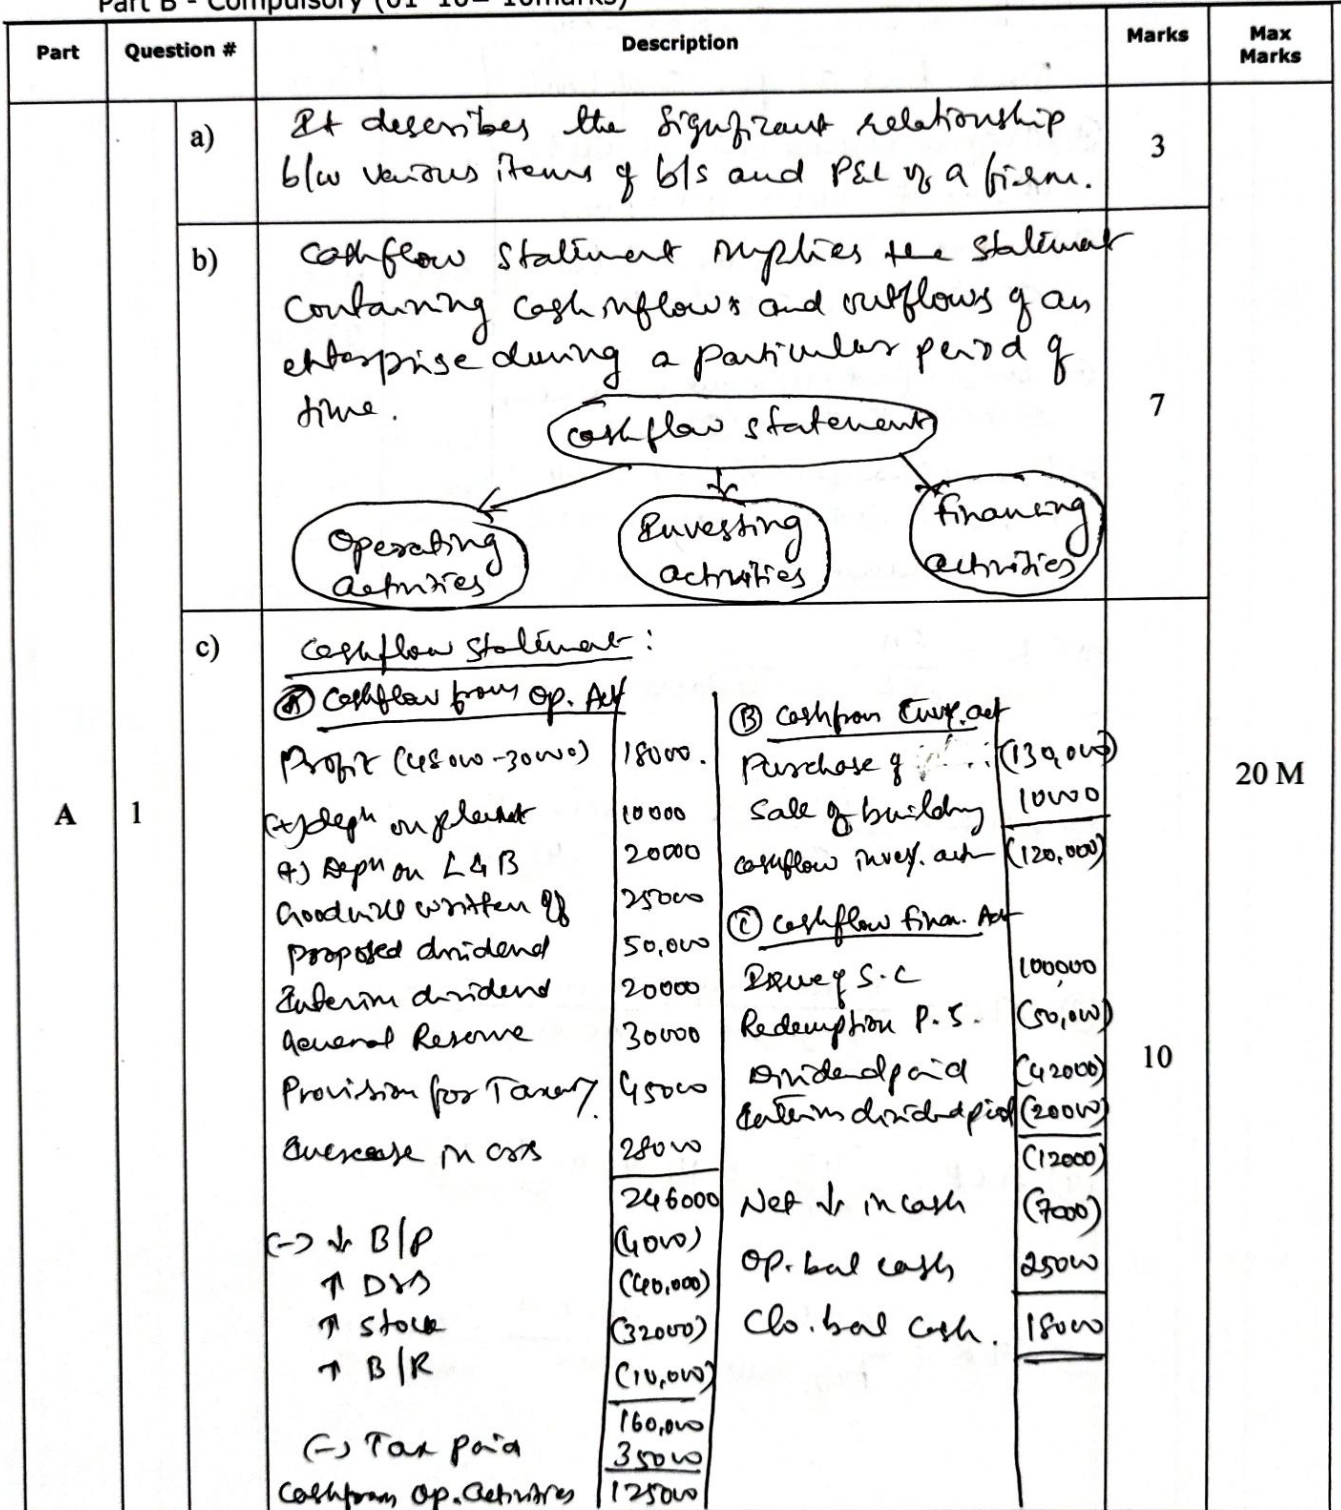 Part B - Compulsory (01*10= 10marks)
Part Question # Description Marks Max Marks
A 1 20 M
a) It describes the significant relationship 3
b/w various items of b/s and P&L of a firm.
b) Cashflow statement implies the statement 7
containing cash inflows and outflows of an
enterprise during a particular period of
time.
Cashflow statement
Operating activities
Investing activities
Financing activities
c) Cashflow statement: 10
(A) Cashflow from Op. Act
Profit (48000-30000) 18000.
(+) deph on plant 10000
(+) Deph on L&B 20000
Goodwill written off 25000
proposed dividend 50,000
Interim dividend 20000
General Reserve 30000
Provision for Taxn. 45000
Increase in crs 28000
246000
(-) ↓ B/P (4000)
↑ Drs (40,000)
↑ Stock (32000)
↑ B/R (10,000)
160,000
(-) Tax paid 35000
Cash from Op. activities 125000
(B) Cash from Inv. act
Purchase of (130,000)
Sale of building 10000
cashflow inves. act (120,000)
(C) Cashflow finan. Act
Issue of S.C 100000
Redemption P.S. (50,000)
Dividend paid (42000)
Interim dividend paid (20000)
(12000)
Net ↓ in cash (7000)
Op. bal cash 25000
Clo. bal cash. 18000